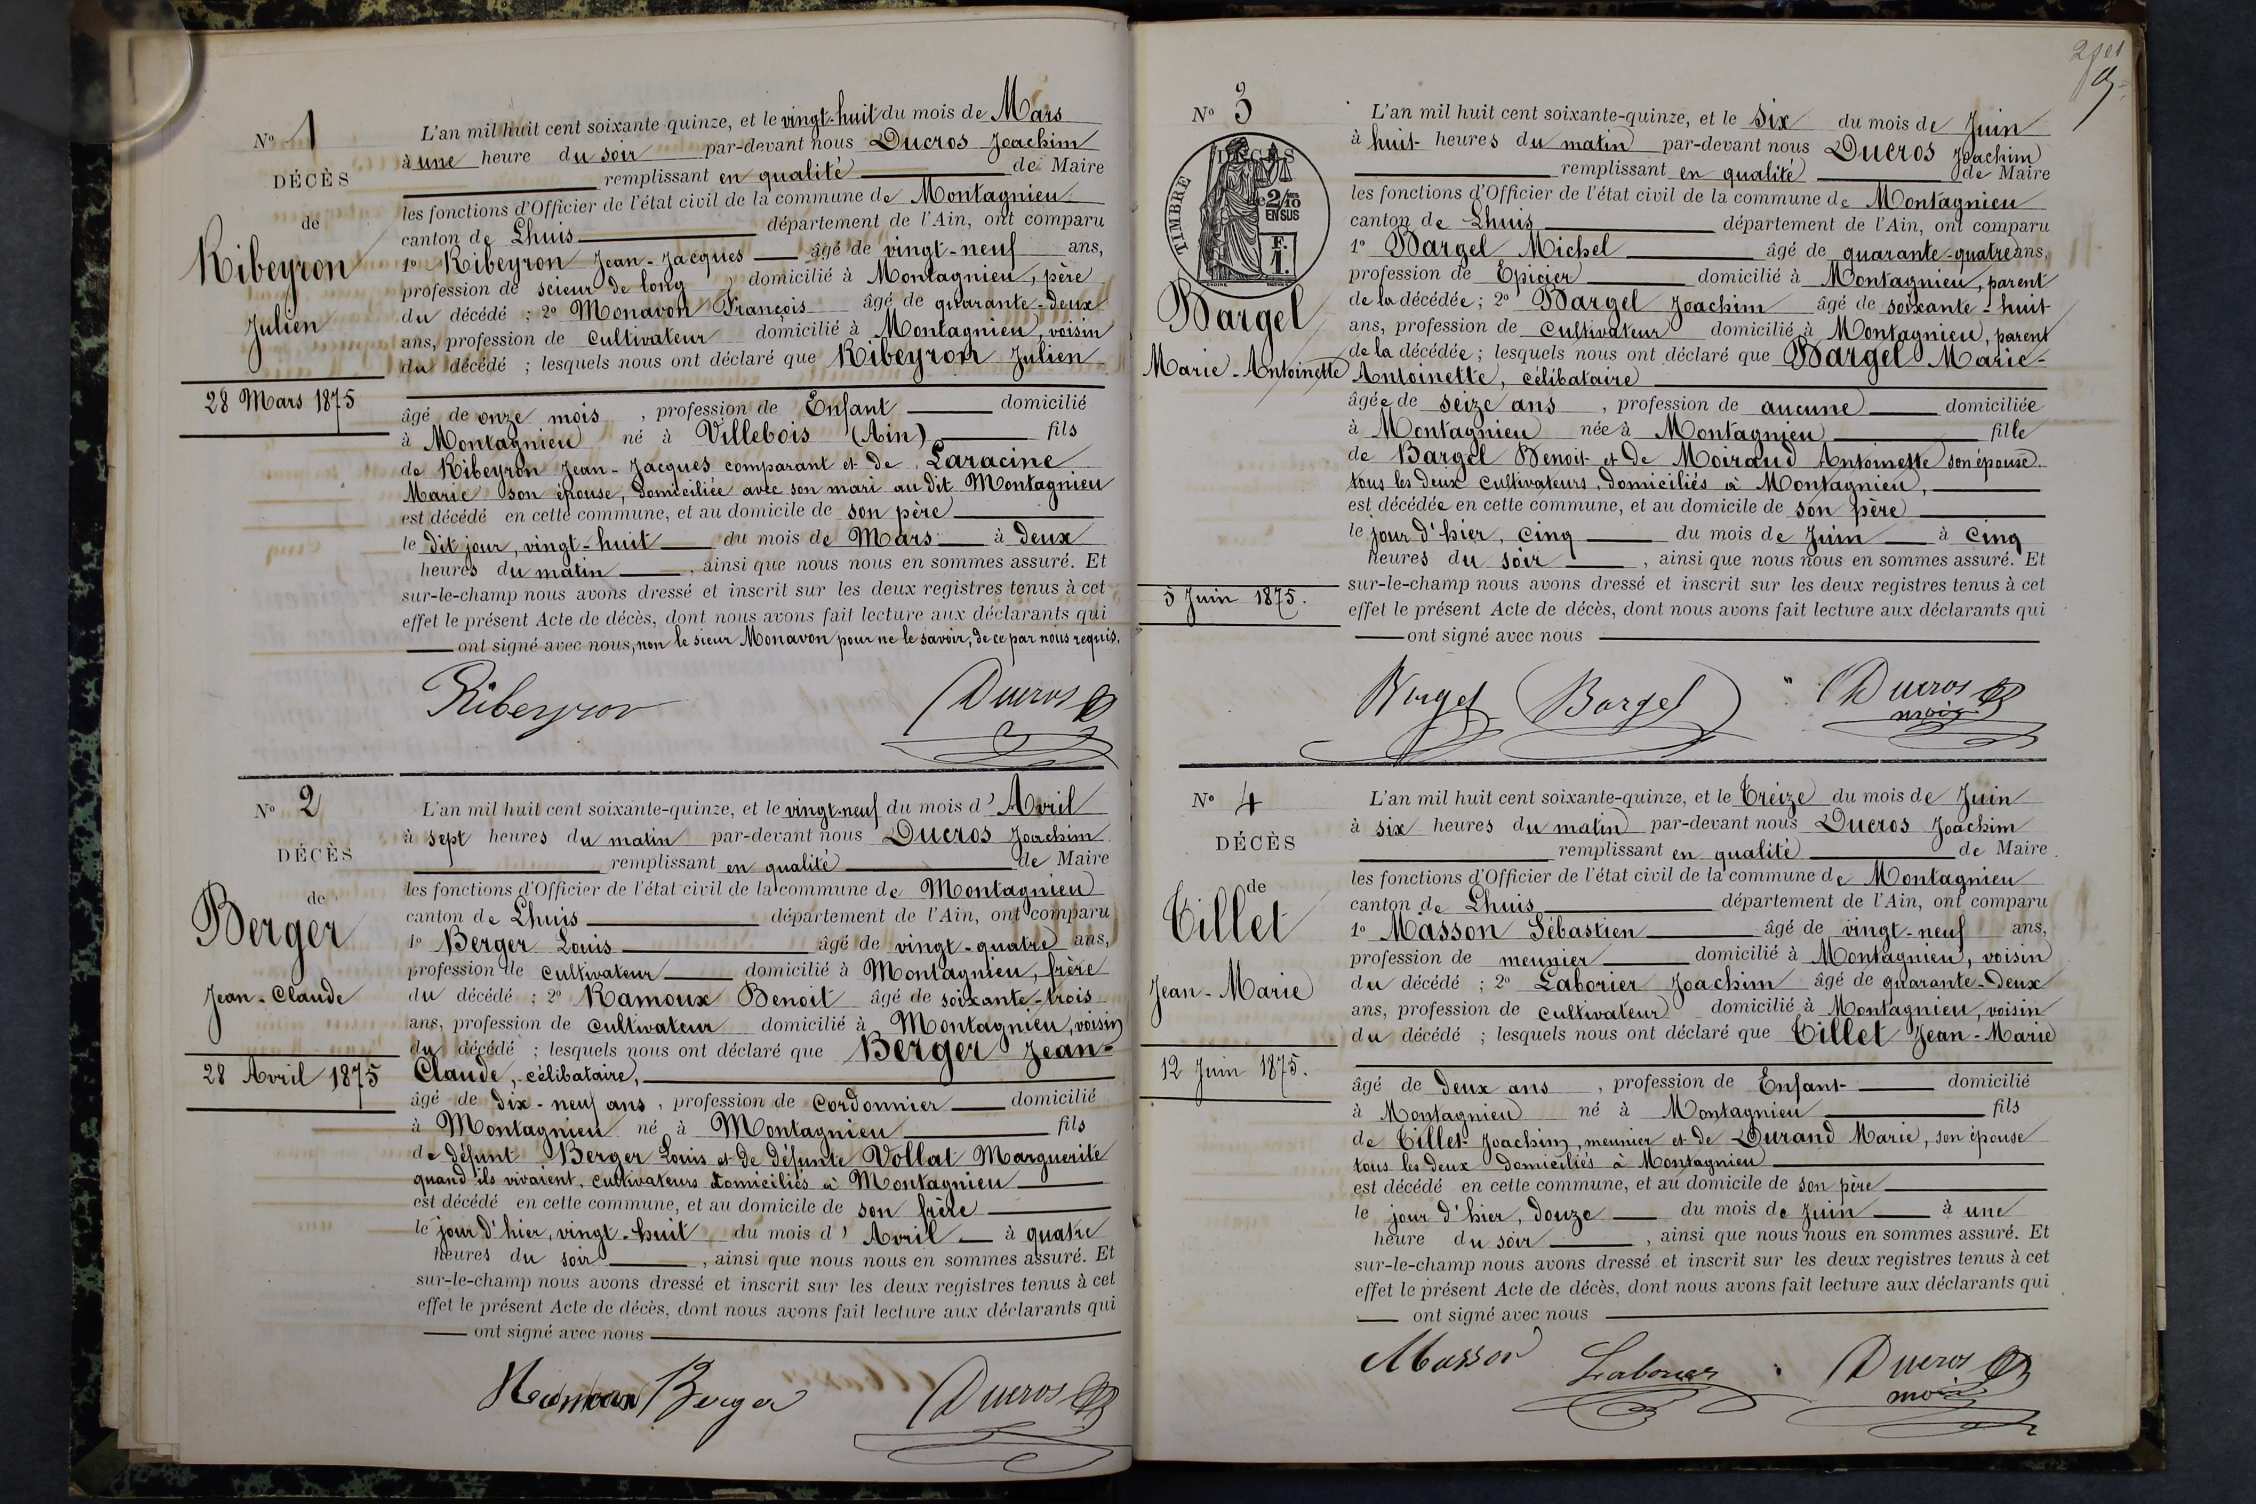 N° 1
DÉCÈS
de
Ribeyron
Julien
28 Mars 1875
L'an mil huit cent soixante-quinze, et le vingt-huit du mois de Mars
à une heure du soir par-devant nous Ducros Joachim
remplissant en qualité de Maire
les fonctions d'Officier de l'état civil de la commune de Montagnieu
canton de Lhuis département de l'Ain, ont comparu
1° Ribeyron Jean-Jacques âgé de vingt-neuf ans,
profession de scieur de long domicilié à Montagnieu, père
du décédé ; 2° Monavon François âgé de quarante-deux
ans, profession de cultivateur domicilié à Montagnieu, voisin
du décédé ; lesquels nous ont déclaré que Ribeyron Julien
âgé de onze mois, profession de Enfant domicilié
à Montagnieu né à Villebois (Ain) fils
de Ribeyron Jean-Jacques comparant et de Laracine
Marie son épouse, domiciliée avec son mari au dit Montagnieu
est décédé en cette commune, et au domicile de son père
le dit jour, vingt-huit du mois de Mars à deux
heures du matin, ainsi que nous nous en sommes assuré. Et
sur-le-champ nous avons dressé et inscrit sur les deux registres tenus à cet
effet le présent Acte de décès, dont nous avons fait lecture aux déclarants qui
ont signé avec nous, non le sieur Monavon pour ne le savoir, de ce par nous requis.
Ribeyron Ducros
N° 2
DÉCÈS
de
Berger
Jean-Claude
28 Avril 1875
L'an mil huit cent soixante-quinze, et le vingt-neuf du mois d' Avril
à sept heures du matin par-devant nous Ducros Joachim
remplissant en qualité de Maire
les fonctions d'Officier de l'état civil de la commune de Montagnieu
canton de Lhuis département de l'Ain, ont comparu
1° Berger Louis âgé de vingt-quatre ans,
profession de cultivateur domicilié à Montagnieu, frère
du décédé ; 2° Ramoux Benoit âgé de soixante-trois
ans, profession de cultivateur domicilié à Montagnieu, voisin
du décédé ; lesquels nous ont déclaré que Berger Jean-
Claude, célibataire,
âgé de dix-neuf ans, profession de cordonnier domicilié
à Montagnieu né à Montagnieu fils
de défunt Berger Louis et de défunte Vollat Marguerite
quand ils vivaient, cultivateurs domiciliés à Montagnieu
est décédé en cette commune, et au domicile de son frère
le jour d'hier, vingt-huit du mois d' Avril à quatre
heures du soir, ainsi que nous nous en sommes assuré. Et
sur-le-champ nous avons dressé et inscrit sur les deux registres tenus à cet
effet le présent Acte de décès, dont nous avons fait lecture aux déclarants qui
ont signé avec nous
Berger Ducros
N° 3
DÉCÈS
TIMBRE
2/10
EN SUS
F.
1.
Bargel
Marie-Antoinette
5 Juin 1875.
L'an mil huit cent soixante-quinze, et le six du mois de Juin
à huit heures du matin par-devant nous Ducros Joachim
remplissant en qualité de Maire
les fonctions d'Officier de l'état civil de la commune de Montagnieu
canton de Lhuis département de l'Ain, ont comparu
1° Bargel Michel âgé de quarante-quatre ans,
profession de Epicier domicilié à Montagnieu, parent
de la décédée ; 2° Bargel Joachim âgé de soixante-huit
ans, profession de cultivateur domicilié à Montagnieu, parent
de la décédée ; lesquels nous ont déclaré que Bargel Marie-
Antoinette, célibataire
âgée de seize ans, profession de aucune domiciliée
à Montagnieu née à Montagnieu fille
de Bargel Benoit et de Moiraud Antoinette son épouse
tous les deux cultivateurs, domiciliés à Montagnieu,
est décédée en cette commune, et au domicile de son père
le jour d'hier, cinq du mois de Juin à cinq
heures du soir, ainsi que nous nous en sommes assuré. Et
sur-le-champ nous avons dressé et inscrit sur les deux registres tenus à cet
effet le présent Acte de décès, dont nous avons fait lecture aux déclarants qui
ont signé avec nous
Bargel Bargel Ducros
N° 4
DÉCÈS
de
Tillet
Jean-Marie
12 Juin 1875.
L'an mil huit cent soixante-quinze, et le treize du mois de Juin
à six heures du matin par-devant nous Ducros Joachim
remplissant en qualité de Maire
les fonctions d'Officier de l'état civil de la commune de Montagnieu
canton de Lhuis département de l'Ain, ont comparu
1° Masson Sébastien âgé de vingt-neuf ans,
profession de meunier domicilié à Montagnieu, voisin
du décédé ; 2° Laborier Joachim âgé de quarante-deux
ans, profession de cultivateur domicilié à Montagnieu, voisin
du décédé ; lesquels nous ont déclaré que Tillet Jean-Marie
âgé de deux ans, profession de Enfant domicilié
à Montagnieu né à Montagnieu fils
de Tillet Joachim, meunier et de Durand Marie, son épouse
tous les deux domiciliés à Montagnieu
est décédé en cette commune, et au domicile de son père
le jour d'hier, douze du mois de Juin à une
heure du soir, ainsi que nous nous en sommes assuré. Et
sur-le-champ nous avons dressé et inscrit sur les deux registres tenus à cet
effet le présent Acte de décès, dont nous avons fait lecture aux déclarants qui
ont signé avec nous
Masson Laborier Ducros